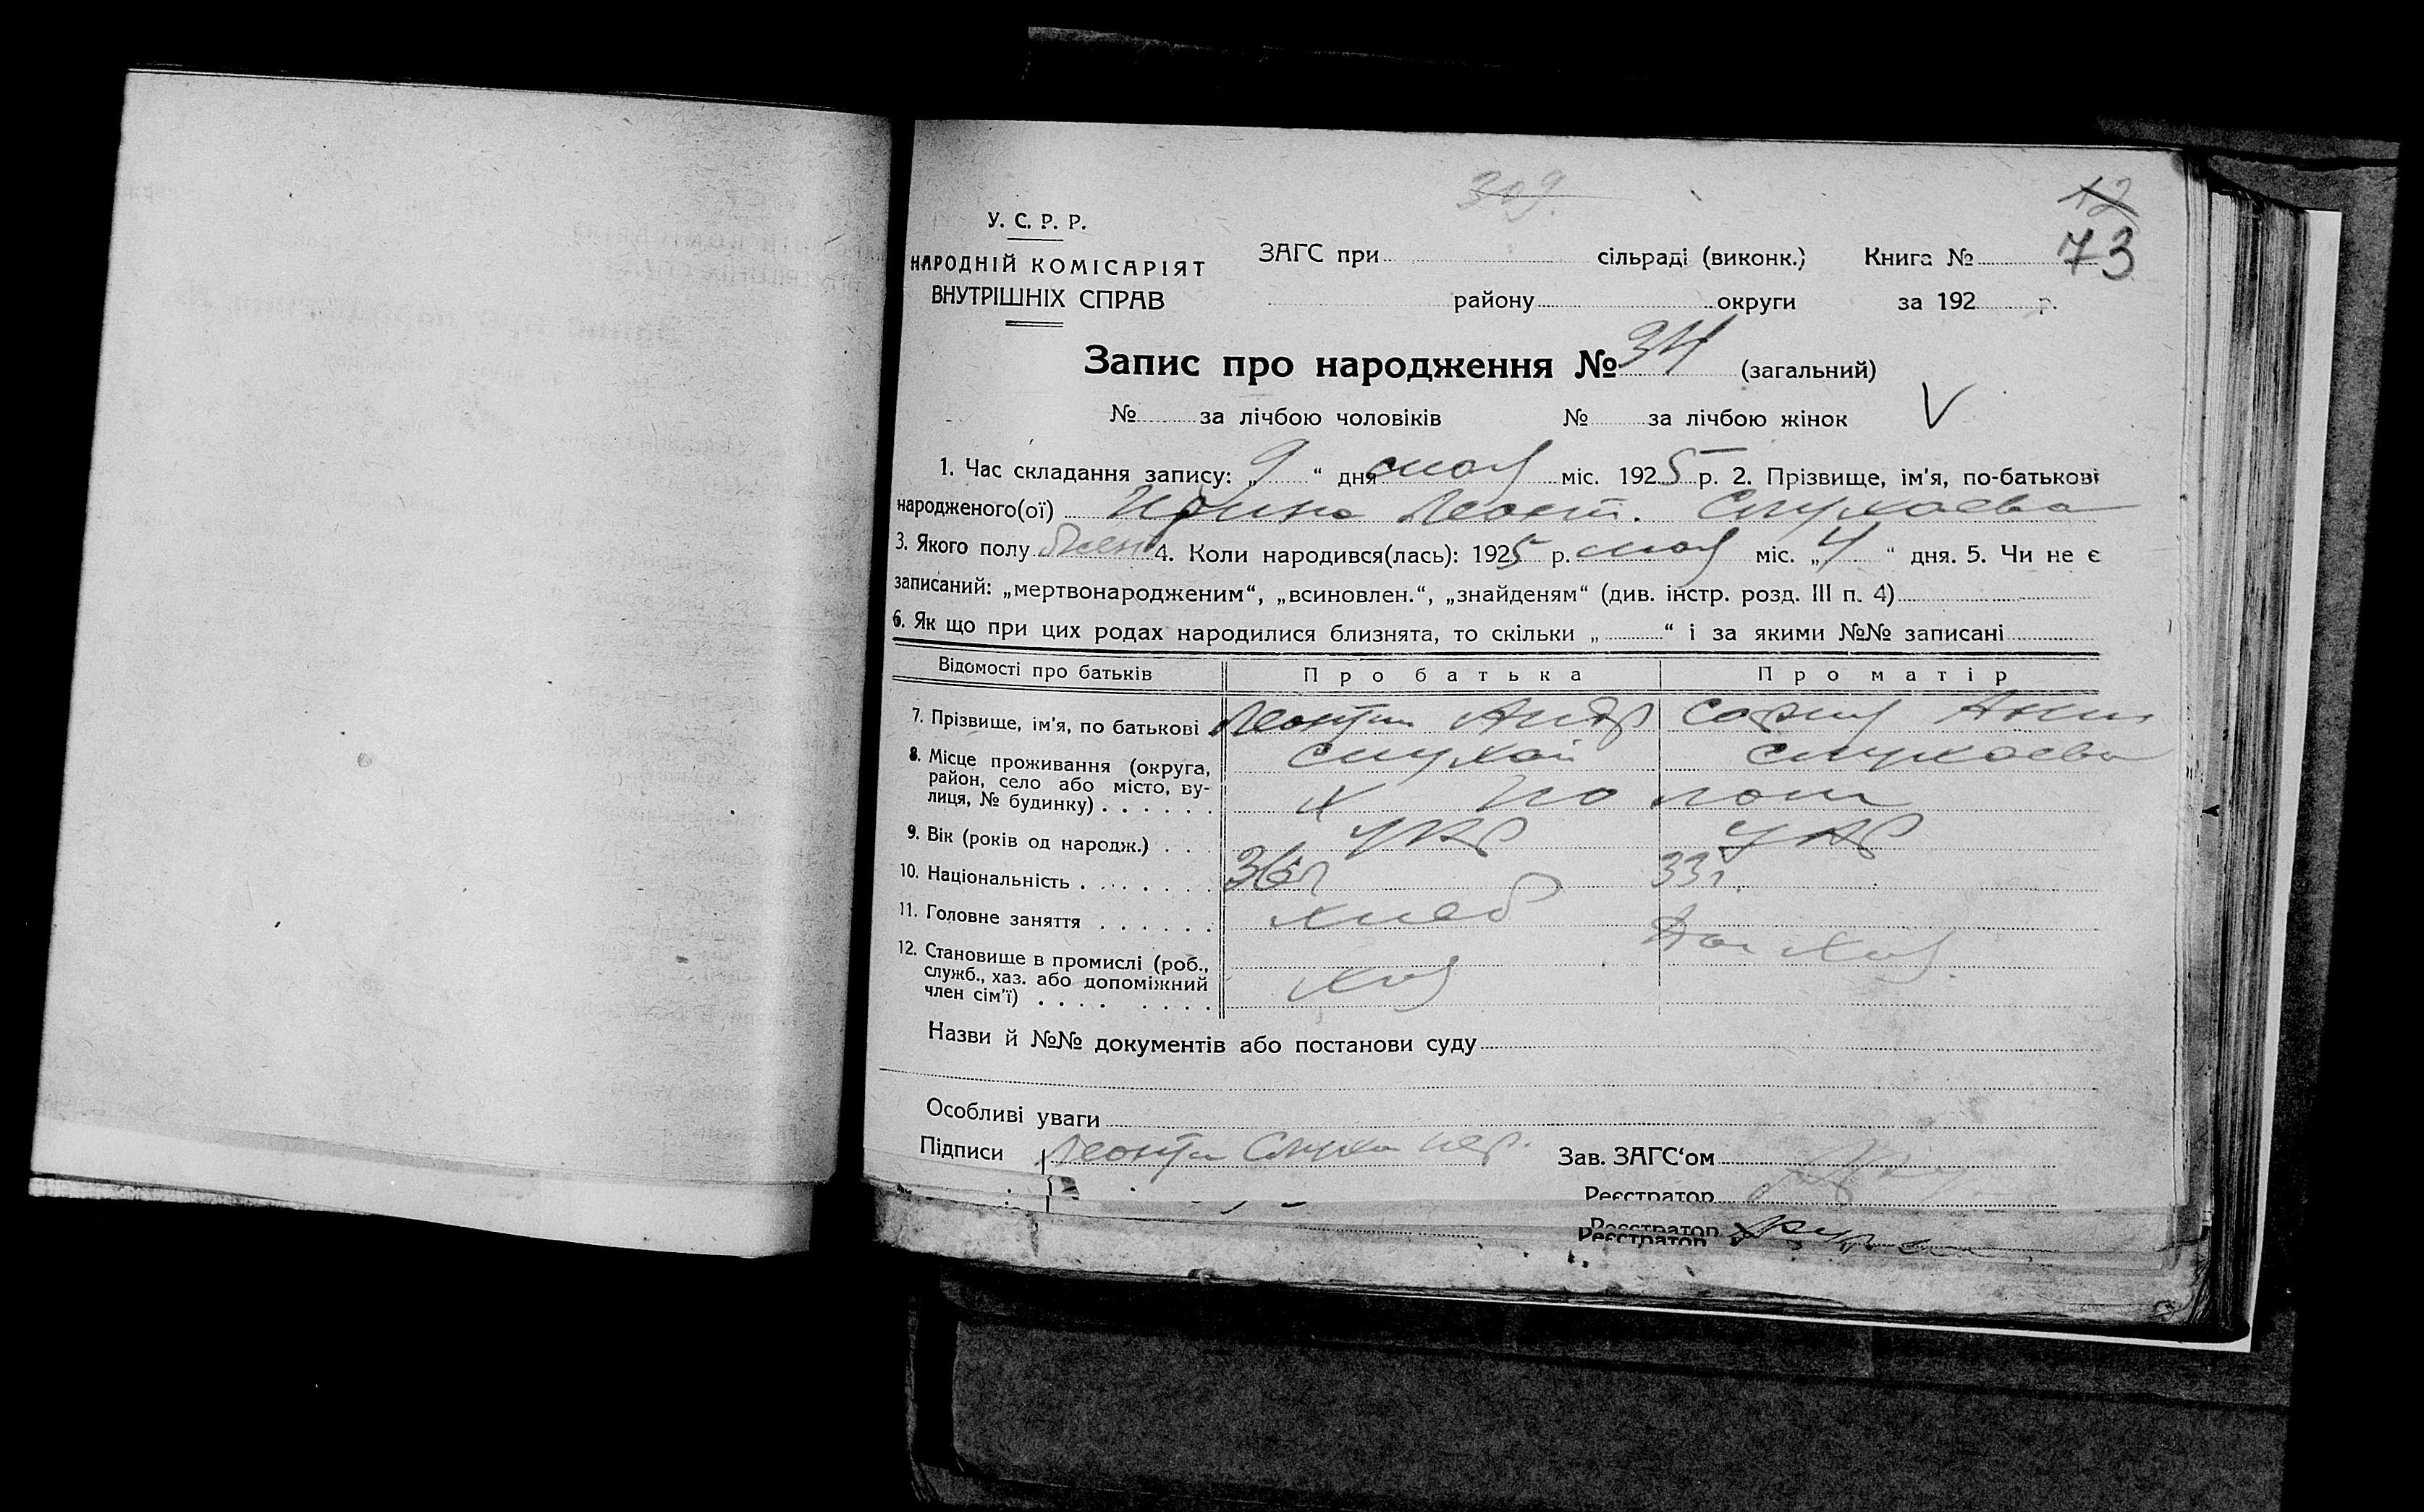 309.
12
73
У. С. Р. Р.
НАРОДНІЙ КОМІСАРІЯТ
ВНУТРІШНІХ СПРАВ
ЗАГС при сільраді (виконк.) Книга №
району округи за 192 р.
Запис про народження № 34 (загальний)
№ за лічбою чоловіків № за лічбою жінок V
1. Час складання запису: „ 9 “ дня мая міс. 1925 р. 2. Прізвище, ім'я, по-батькові
народженого(ої) Ирина Леонт.
3. Якого полу жен 4. Коли народився(лась): 1925 р. мая міс. „ 4 “ дня. 5. Чи не є
записаний: „мертвонародженим“, „всиновлен.“, „знайденям“ (див. інстр. розд. III п. 4)
6. Як що при цих родах народилися близнята, то скільки „ “ і за якими №№ записані
Відомості про батьків Про батька Про матір
7. Прізвище, ім'я, по батькові Леонтий Андр
8. Місце проживання (округа,
район, село або місто, ву-
лиця, № будинку) . . . . . .
9. Вік (років од народж.) . . . укр укр
10. Національність . . . . . . . 36 г 33 г.
11. Головне заняття . . . . . . хлеб
12. Становище в промислі (роб.,
служб., хаз. або допоміжний
член сім'ї) . . . . . . . . хоз
Назви й №№ документів або постанови суду
Особливі уваги
Підписи Зав. ЗАГС'ом
Реєстратор
Реєстратор
Реєстратор